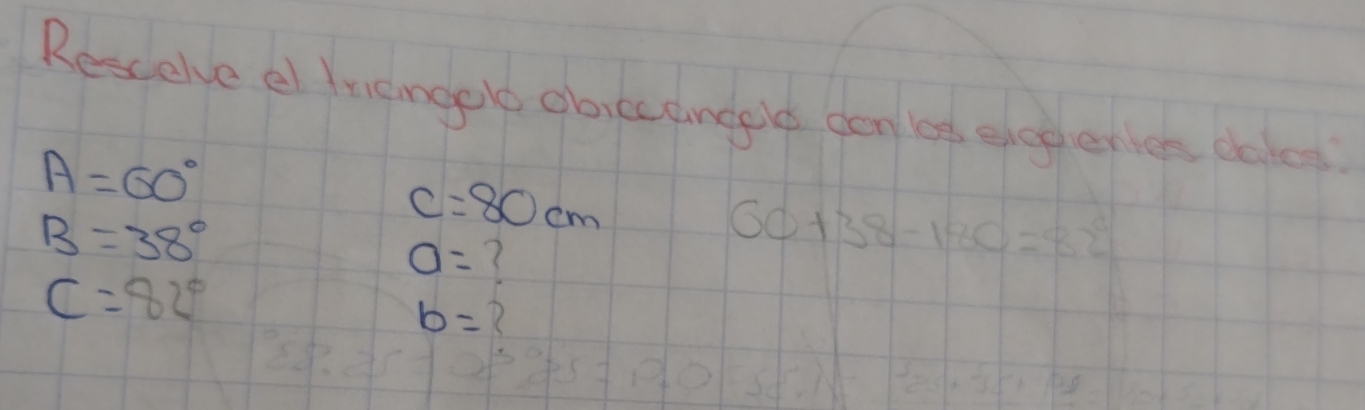 Resuelve el triangulo obicuangulo con los siguientes datos:
A=60° c=80cm 60+38-180=82°
B=38° a=?
C=82° b=?